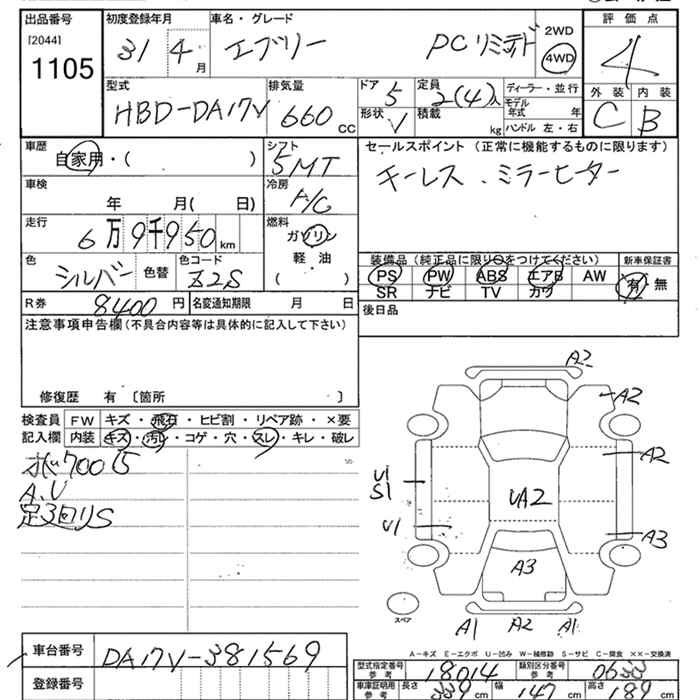 出品番号 初度登録年月 車名・グレード 評価点
[2044] 31 4月 エブリー PCリミテド 2WD 4WD 4
1105
型式 排気量 ドア 5 定員 2(4)人 ディーラー・並行 外装 内装
HBD-DA17V 660cc 形状 V 積載 kg モデル年式 年 C B
ハンドル 左・右
車歴 シフト セールスポイント(正常に機能するものに限ります)
自家用・( ) 5MT キーレス、ミラーヒーター
車検 冷房
年 月( 日) A/C
走行 燃料
6万9千950km ガソリン
軽・油
( )
色 シルバー 色替 色コード Z2S
装備品(純正品に限り○をつけてください) 新車保証書
PS PW ABS エアB AW 有・無
SR ナビ TV カワ
R券 8400円 名変通知期限 月 日 後日品
注意事項申告欄(不具合内容等は具体的に記入して下さい)
修復歴 有〔箇所 〕
検査員 FW キズ・飛石・ヒビ割・リペア跡・×要
記入欄 内装 キズ・汚レ・コゲ・穴・スレ・キレ・破レ
A.U
A2
A2
A2
U1
S1
UA2
U1
A3
A3
スペア
A1 A2 A1
A-キズ E-エクボ U-凹み W-補修跡 S-サビ C-腐食 ××-交換済
車台番号 DA17V-381569
登録番号
型式指定番号 参考 18014 類別区分番号 参考
車庫証明用 参考 長さ 339cm 幅 147cm 高さ 189cm